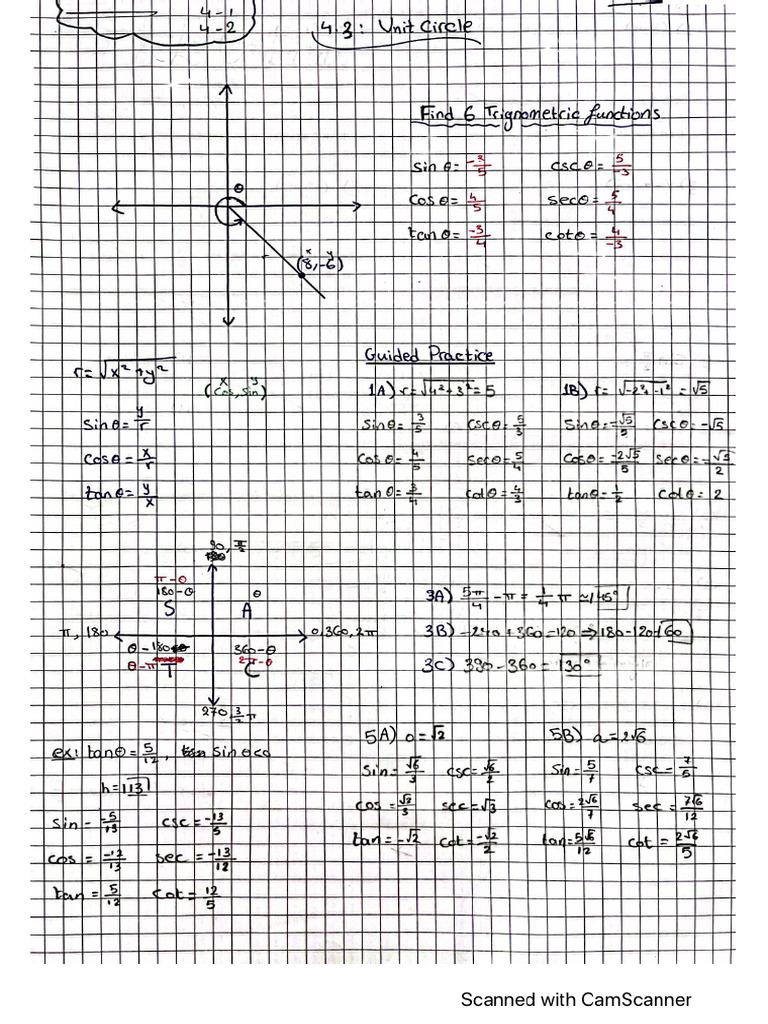 4-1
4-2
4.3: Unit Circle
Find 6 Trignometric functions
sin θ = -3/5 csc θ = 5/-3
cos θ = 4/5 sec θ = 5/4
tan θ = -3/4 cot θ = 4/-3
θ
x y
(8,-6)
r = √x² + y²
x y
(cos, sin)
sin θ = y/r
cos θ = x/r
tan θ = y/x
Guided Practice
1A) r = √4² + 3² = 5
sin θ = 3/5 csc θ = 5/3
cos θ = 4/5 sec θ = 5/4
tan θ = 3/4 cot θ = 4/3
1B) r = √-2²+-1² = √5
sin θ = -√5/5 csc θ = -√5
cos θ = -2√5/5 sec θ = -√5/2
tan θ = 1/2 cot θ = 2
90, π/2
π-θ
180-θ θ
S A
π, 180 0, 360, 2π
θ-180 360-θ
θ-π 2π-θ
T C
270, 3/2 π
3A) 5π/4 - π = 1/4 π ≈ 45°
3B) -240 + 360 = 120 ⇒ 180-120 = 60
3C) 390 - 360 = 30°
ex: tan θ = 5/12, sin θ < 0
h = 13
sin = -5/13 csc = -13/5
cos = -12/13 sec = -13/12
tan = 5/12 cot = 12/5
5A) o = √2
sin = √6/3 csc = √6/2
cos = √3/3 sec = √3
tan = -√2 cot = -√2/2
5B) a = 2√6
sin = 5/7 csc = 7/5
cos = 2√6/7 sec = 7√6/12
tan = 5√6/12 cot = 2√6/5
Scanned with CamScanner